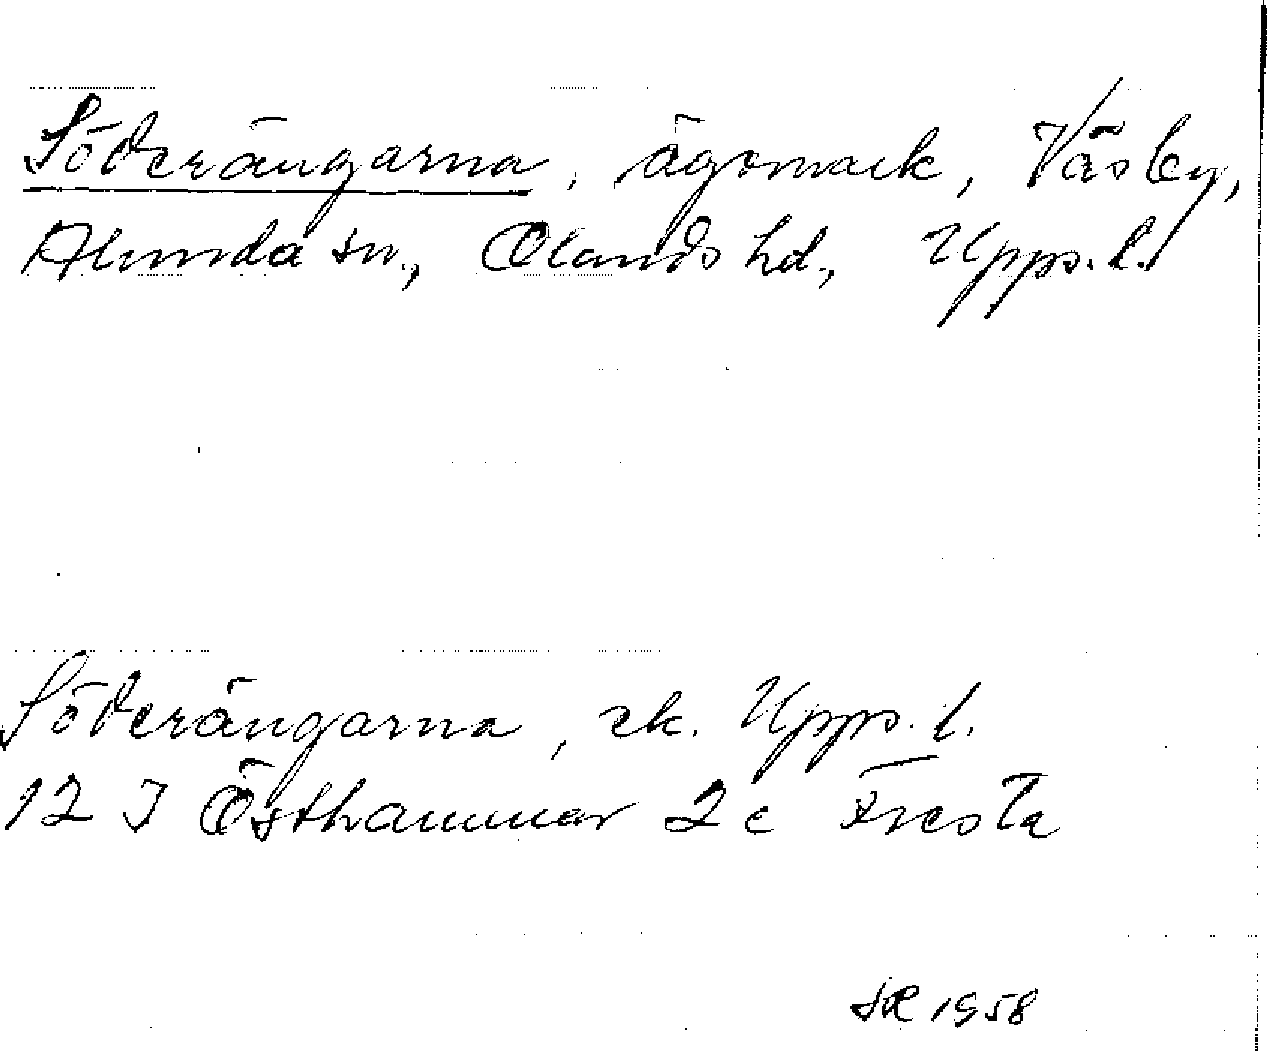 Söderängarna, ägomark, Väsby,
Alunda sn., Olands hd., Upps. l.
Söderängarna, ek. Upps. l.
12 I Östhammar 2 c Fresta
1958